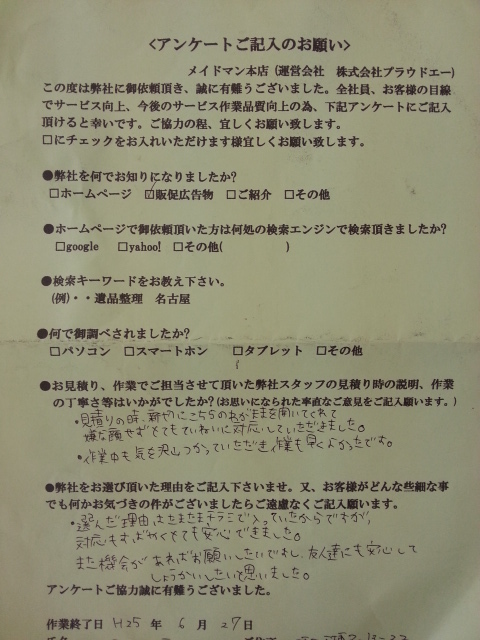 <アンケートご記入のお願い>
メイドマン本店 (運営会社　株式会社プラウドエー)
この度は弊社に御依頼頂き、誠に有難うございました。全社員、お客様の目線
でサービス向上、今後のサービス作業品質向上の為、下記アンケートにご記入
頂けると幸いです。ご協力の程、宜しくお願い致します。
□にチェックをお入れいただけます様宜しくお願い致します。
●弊社を何でお知りになりましたか?
□ホームページ　☑販促広告物　□ご紹介　□その他
●ホームページで御依頼頂いた方は何処の検索エンジンで検索頂きましたか?
□google　□yahoo!　□その他(　　　　　)
●検索キーワードをお教え下さい。
(例)・・遺品整理　名古屋
●何で御調べされましたか?
□パソコン　□スマートホン　□タブレット　□その他
●お見積り、作業でご担当させて頂いた弊社スタッフの見積り時の説明、作業
の丁寧さ等はいかがでしたか? (お思いになられた率直なご意見をご記入願います。)
・見積りの時、親切にこちらのわがままを聞いてくれて
嫌な顔せずとてもていねいに対応していただきました。
・作業中も気を沢山つかっていただき、作業も早くよかったです。
●弊社をお選び頂いた理由をご記入下さいませ。又、お客様がどんな些細な事
でも何かお気づきの件がございましたらご遠慮なくご記入願います。
・選んだ理由は、たまたまチラシで入っていたからですが、
対応もすばやくとても安心できました。
また機会があればお願いしたいですし、友達にも安心して
しょうかいしたいと思いました。
アンケートご協力誠に有難うございました。
作業終了日 H25 年 6 月 27 日